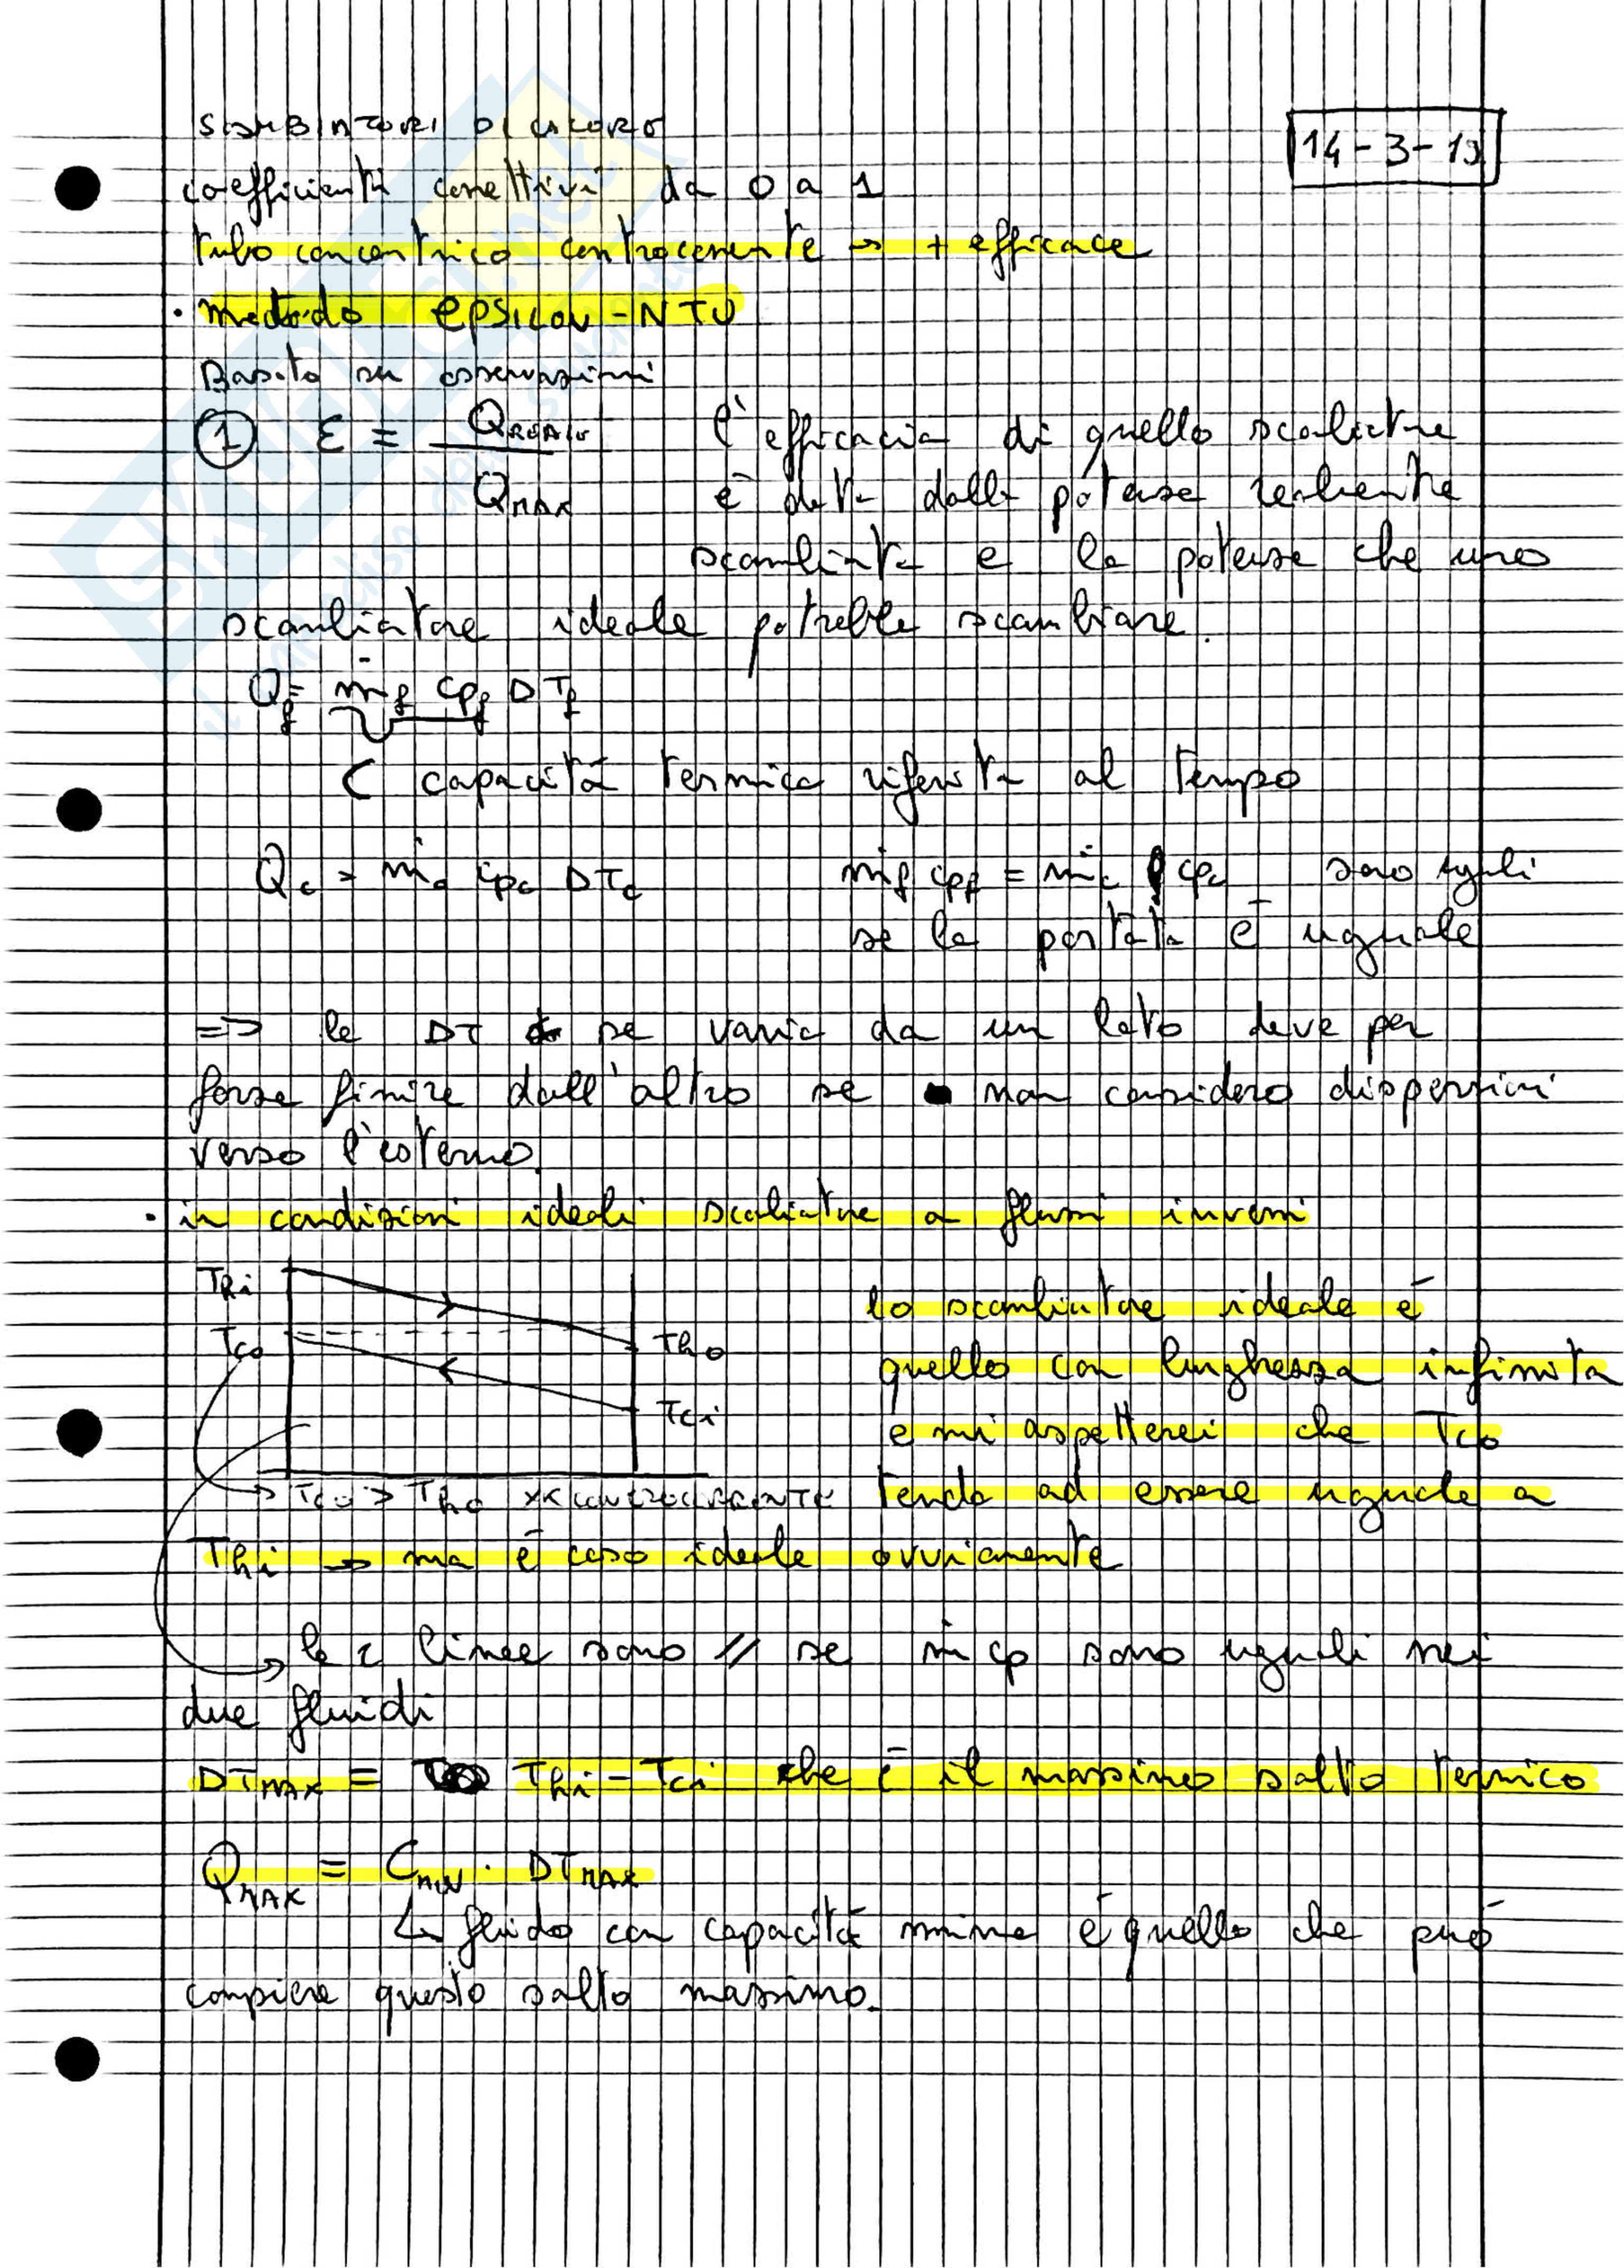 SCAMBIATORI DI CALORE
14-3-19
coefficienti correttivi da 0 a 1
tubo concentrico controcorrente → + efficace
· metodo EPSILON-NTU
Basato su osservazioni
① ε = QREALE / QMAX l'efficacia di quello scabiatore
è data dalla potenza realmente
scambiata e la potenza che uno
scambiatore ideale potrebbe scambiare.
Qf = ṁf cpf DTf
C capacità termica riferita al tempo
Qc = ṁc cpc DTc ṁf cpf = ṁc cpc sono uguali
se la portata è uguale
=> le DT se varia da un lato deve per
forza finire dall'altro se non considero dispersioni
verso l'esterno.
· in condizioni ideali scabiatore a flussi inversi
Thi
Tco
Tho
Tci
→ Tco > Tho XK CONTROCORRENTE
lo scambiatore ideale è
quello con lunghezza infinita
e mi aspetterei che Tco
tenda ad essere uguale a
Thi → ma è caso ideale ovviamente
le 2 linee sono // se ṁ cp sono uguali nei
due fluidi
DTMAX = Thi - Tci che è il massimo salto termico
QMAX = CMIN · DTMAX
↳ fluido con capacità minima è quello che può
compiere questo salto massimo.
SKUOLA.net